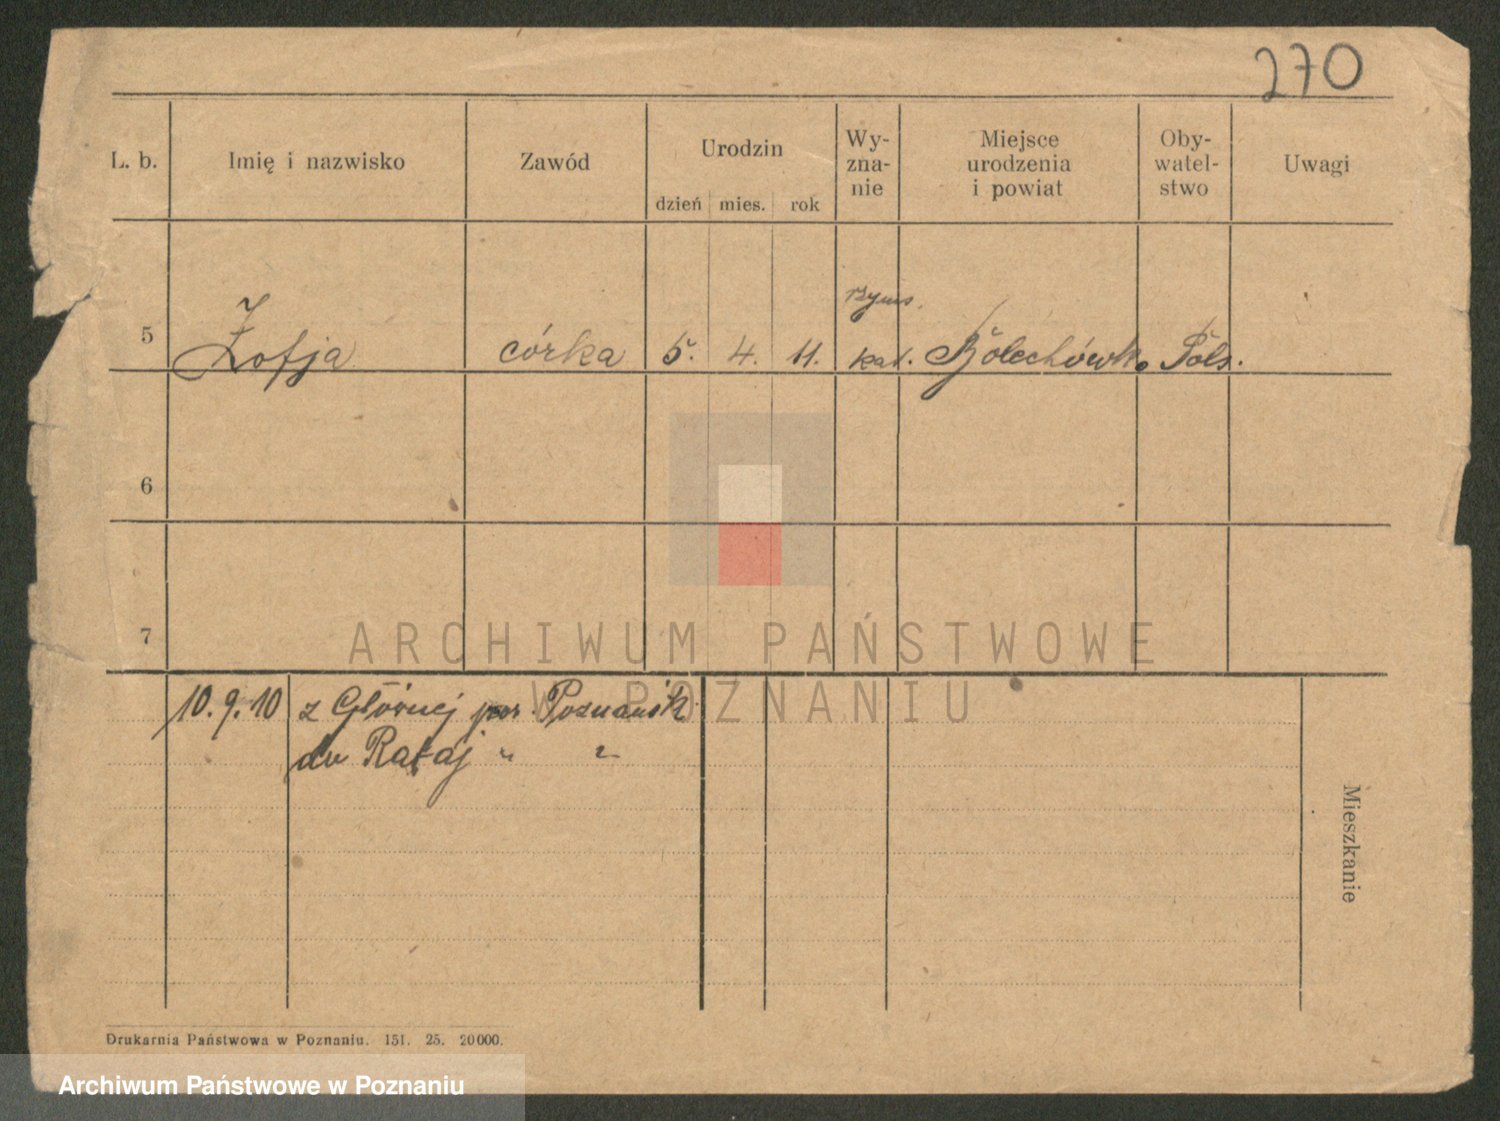 270
L. b. Imię i nazwisko Zawód Urodzin dzień mies. rok Wy- zna- nie Miejsce urodzenia i powiat Oby- watel- stwo Uwagi
5 Zofja córka 5. 4. 11. rzyms. kat. Bolechówko Pols.
6
7
10. 9. 10 z Głównej pow. Poznańsk
do Rataj " "
Mieszkanie
Drukarnia Państwowa w Poznaniu. 151. 25. 20000.
ARCHIWUM PAŃSTWOWE
W POZNANIU
Archiwum Państwowe w Poznaniu